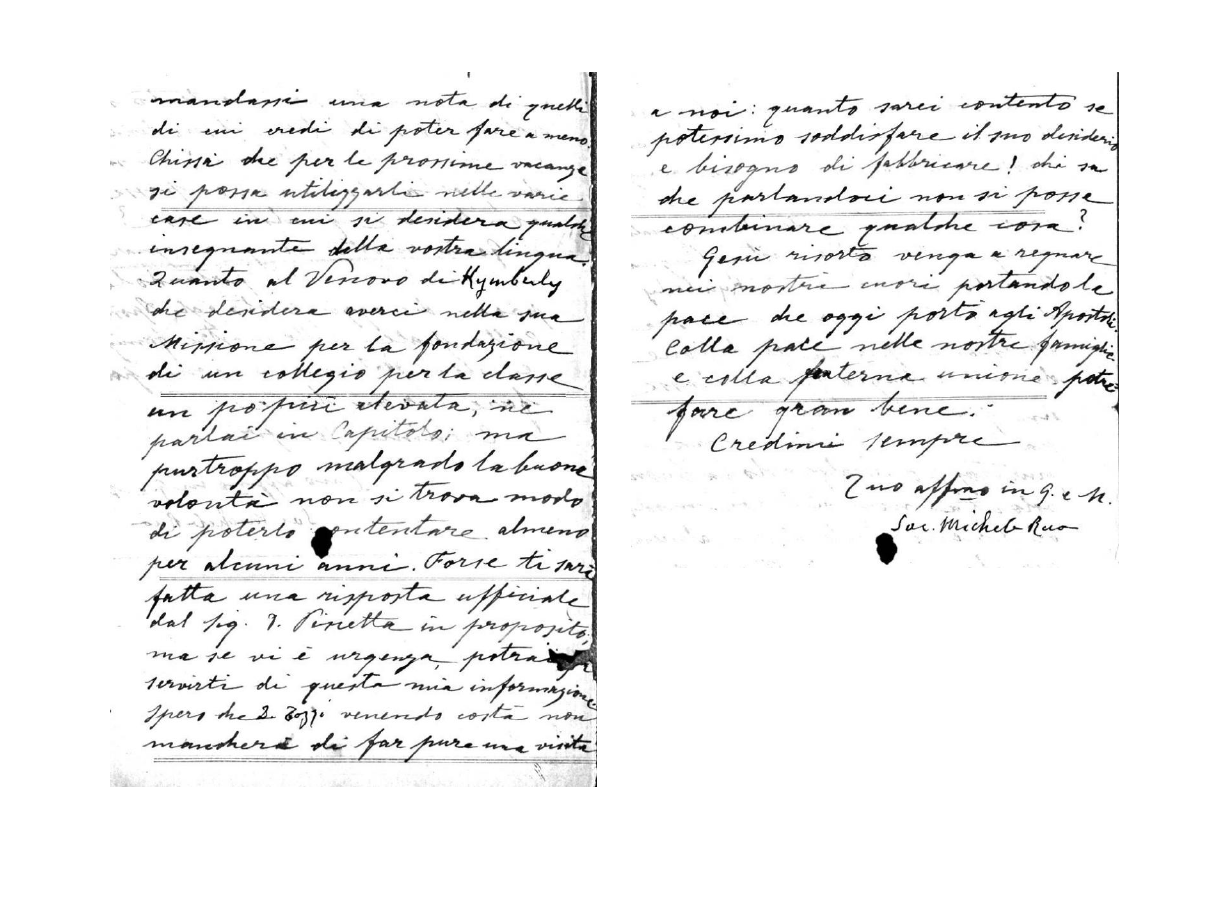 mandassi una nota di quelli
di cui credi di poter fare a meno.
Chissà che per le prossime vacanze
si possa utilizzarli nelle varie
case in cui si desidera qualche
insegnante della vostra lingua.
Quanto al Vescovo di Kymberly
che desidera averci nella sua
Missione per la fondazione
di un collegio per la classe
un po' più elevata, ne
parlai in Capitolo; ma
purtroppo malgrado la buona
volontà non si trova modo
di poterlo contentare almeno
per alcuni anni. Forse ti sarà
fatta una risposta ufficiale
dal Sig. D. in proposito,
ma se vi è urgenza, potrai
servirti di questa mia informazione
Spero che D. Tozzi venendo costà non
mancherà di far pure una visita
a noi: quanto sarei contento se
potessimo soddisfare il suo desiderio
e bisogno di fabbricare! chi sa
che parlandoci non si possa
combinare qualche cosa?
Gesù risorto venga a regnare
nei nostri cuori portando la
pace che oggi portò agli Apostoli.
Colla pace nelle nostre famiglie
e colla fraterna unione potre
fare gran bene.
Credimi sempre
Tuo affmo in G. e M.
Sac. Michele Rua